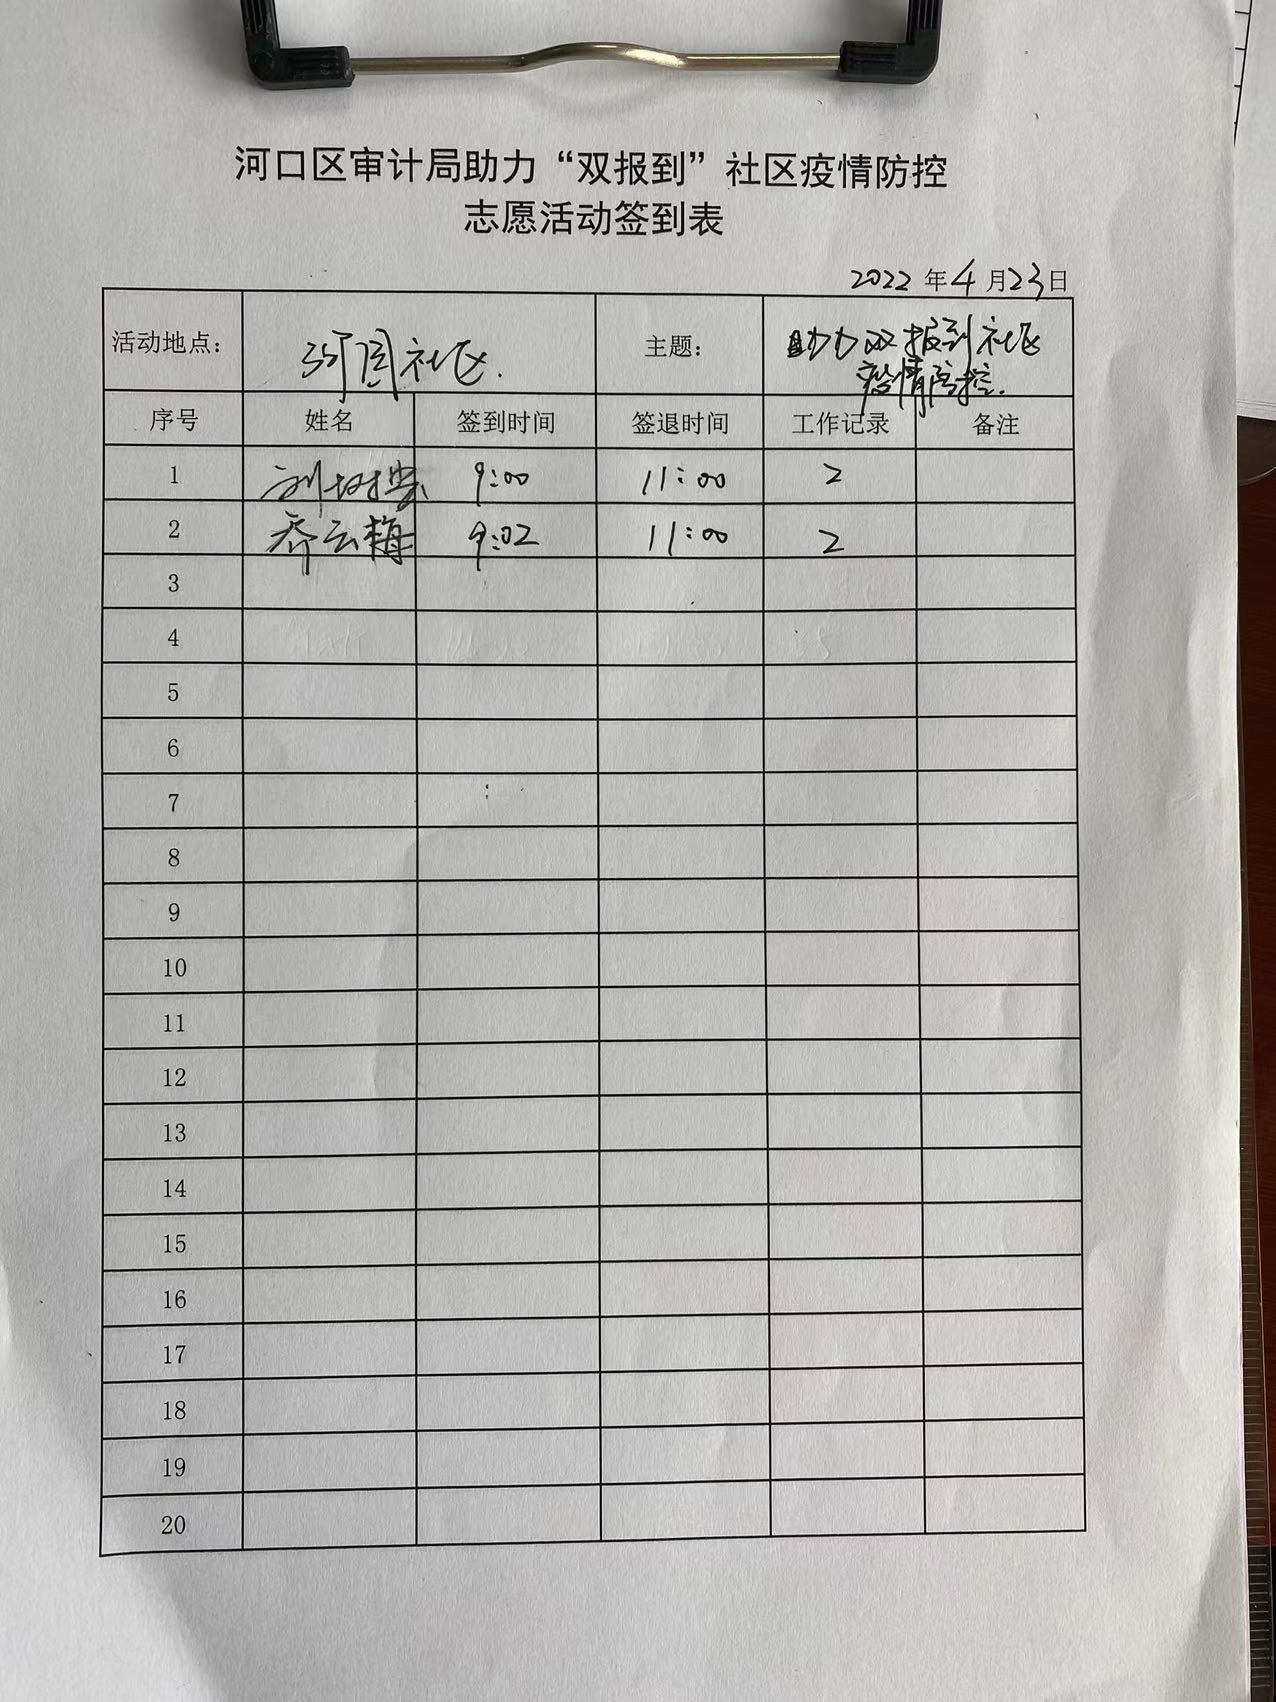 河口区审计局助力“双报到”社区疫情防控
志愿活动签到表
2022年4月23日
活动地点: 河周社区. 主题: 助力双报到社区
疫情防控.
序号 姓名 签到时间 签退时间 工作记录 备注
1 刘树 9:00 11:00 2
2 乔云梅 9:02 11:00 2
3
4
5
6
7
8
9
10
11
12
13
14
15
16
17
18
19
20